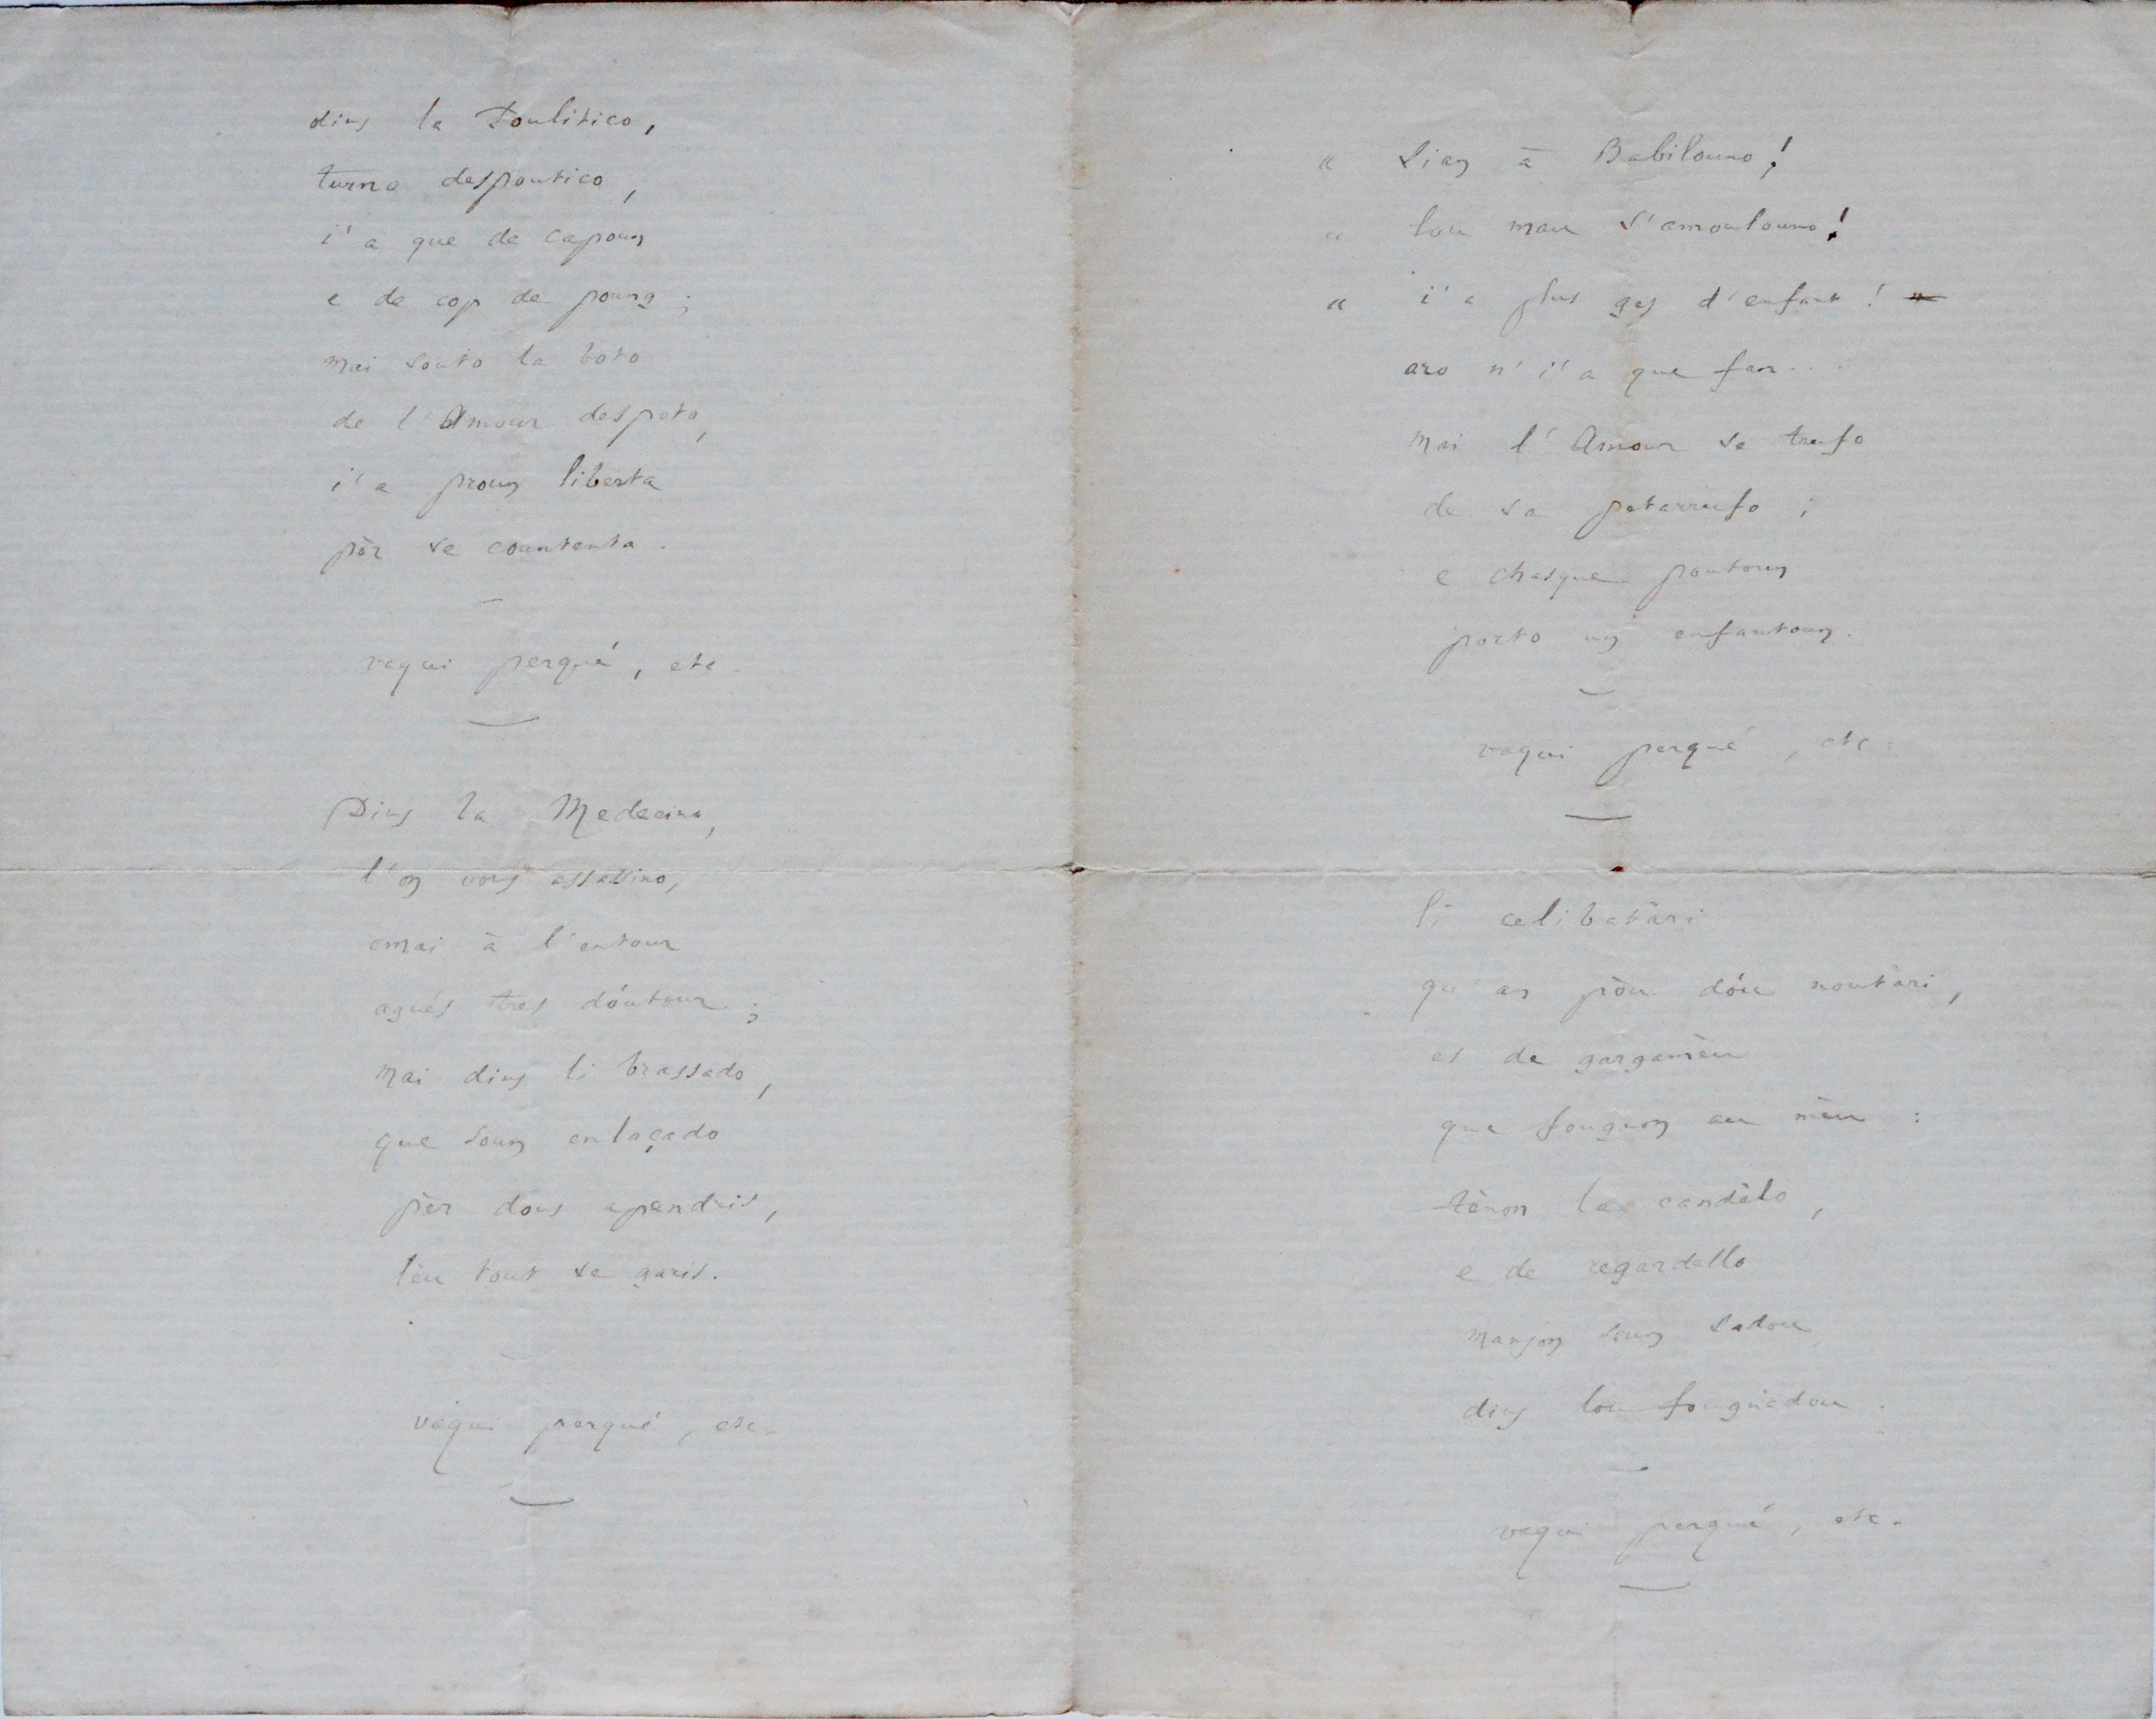 dins la Poulitico,
turno despoutico,
i'a que de capoun
e de cop de poung ;
mai souto la boto
de l'Amour despoto,
i'a proun liberta
pèr se countenta.
vaqui perqué, etc.
Dins la Medecino,
l'on vous assassino,
emai à l'entour
agués tres dóutour ;
mai dins li brassado,
que soun enlaçado
pèr dous apendris,
lèu tout se garis.
vaqui perqué, etc.
« Sian à Babilouno !
« lou mau s'amoulouno !
« i'a plus ges d'enfant !
aro n'i'a que fan...
mai l'Amour se trufo
de sa patarrufo ;
e chasque poutoun
porto un enfantoun.
vaqui perqué, etc.
li celibatàri
qu'an pòu dóu noutàri,
es de gargamèu
que fougnon au mèu :
tènon la candèlo,
e de regardello
manjon soun sadou
dins lou fougnadou.
vaqui perqué, etc.